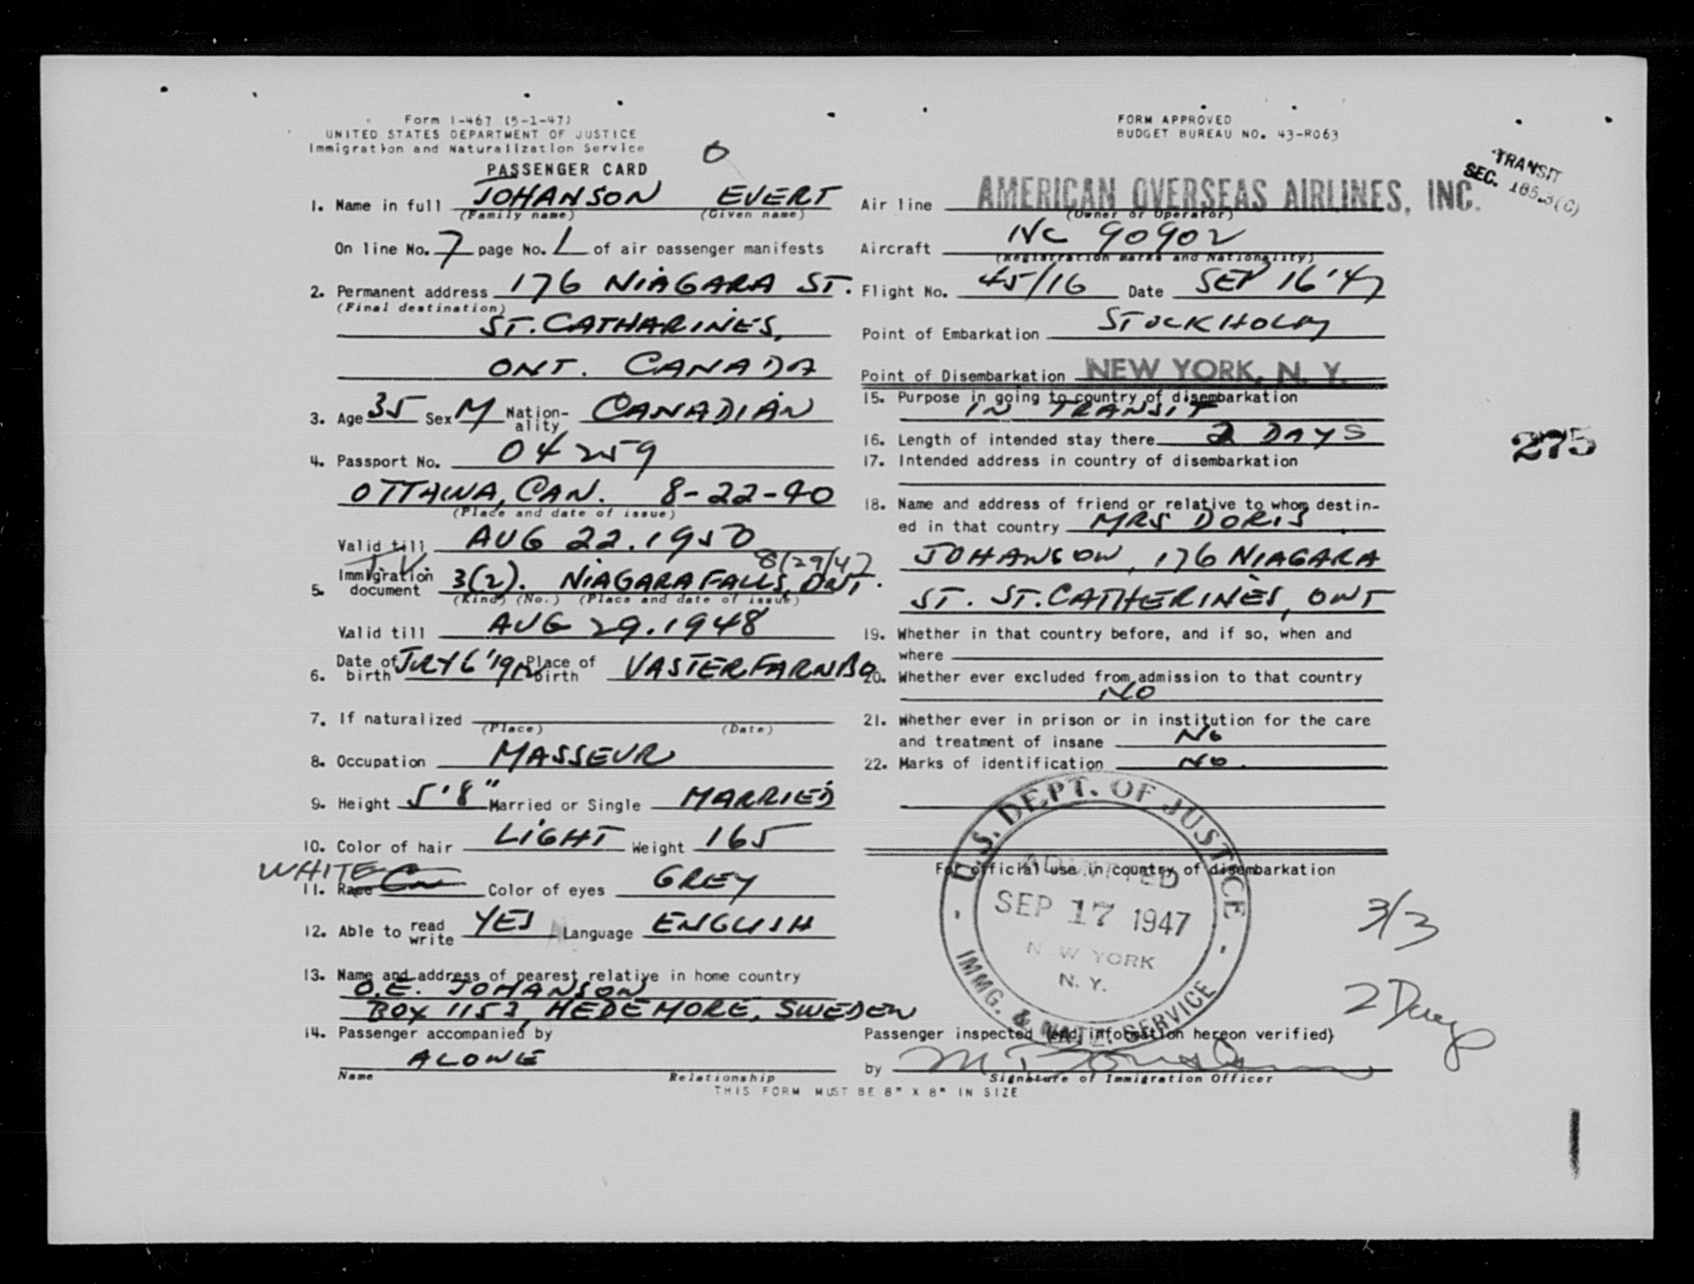 Form I-467 (5-1-47)
UNITED STATES DEPARTMENT OF JUSTICE
Immigration and Naturalization Service
PASSENGER CARD
0
FORM APPROVED
BUDGET BUREAU NO. 43-R063
TRANSIT
SEC. 165.3(C)
1. Name in full JOHANSON EVERT
(Family name) (Given name)
On line No. 7 page No. 1 of air passenger manifests
2. Permanent address 176 NIAGARA ST.
(Final destination)
ST. CATHARINES,
ONT. CANADA
3. Age 35 Sex M Nation-ality CANADIAN
4. Passport No. 04259
OTTAWA, CAN. 8-22-40
(Place and date of issue)
Valid till AUG 22. 1950
8/29/47
5. Immigration document 3(2). NIAGARA FALLS, ONT.
(Kind) (No.) (Place and date of issue)
Valid till AUG 29. 1948
6. Date of birth JULY 6 '1912 Place of birth VASTERFARNBO
7. If naturalized
(Place) (Date)
8. Occupation MASSEUR
9. Height 5'8" Married or Single MARRIED
10. Color of hair LIGHT Weight 165
WHITE
11. Race Color of eyes GREY
12. Able to read write YES Language ENGLISH
13. Name and address of nearest relative in home country
O.E. JOHANSON
BOX 1153, HEDEMORE, SWEDEN
14. Passenger accompanied by
ALONE
Name Relationship
Air line AMERICAN OVERSEAS AIRLINES, INC.
(Owner or Operator)
Aircraft NC 90902
(Registration marks and Nationality)
Flight No. 45/16 Date SEP 16 '47
Point of Embarkation STOCKHOLM
Point of Disembarkation NEW YORK, N. Y.
15. Purpose in going to country of disembarkation
IN TRANSIT
16. Length of intended stay there 2 DAYS
17. Intended address in country of disembarkation
275
18. Name and address of friend or relative to whom destin-
ed in that country MRS DORIS
JOHANSON, 176 NIAGARA
ST. ST. CATHERINES, ONT
19. Whether in that country before, and if so, when and
where
20. Whether ever excluded from admission to that country
NO
21. Whether ever in prison or in institution for the care
and treatment of insane NO
22. Marks of identification NO.
For official use in country of disembarkation
U.S. DEPT. OF JUSTICE
ADMITTED
SEP 17 1947
NEW YORK
N. Y.
IMMG. & NATZ. SERVICE
3/3
2 Days
Passenger inspected (and information hereon verified)
by
Signature of Immigration Officer
THIS FORM MUST BE 8" X 8" IN SIZE